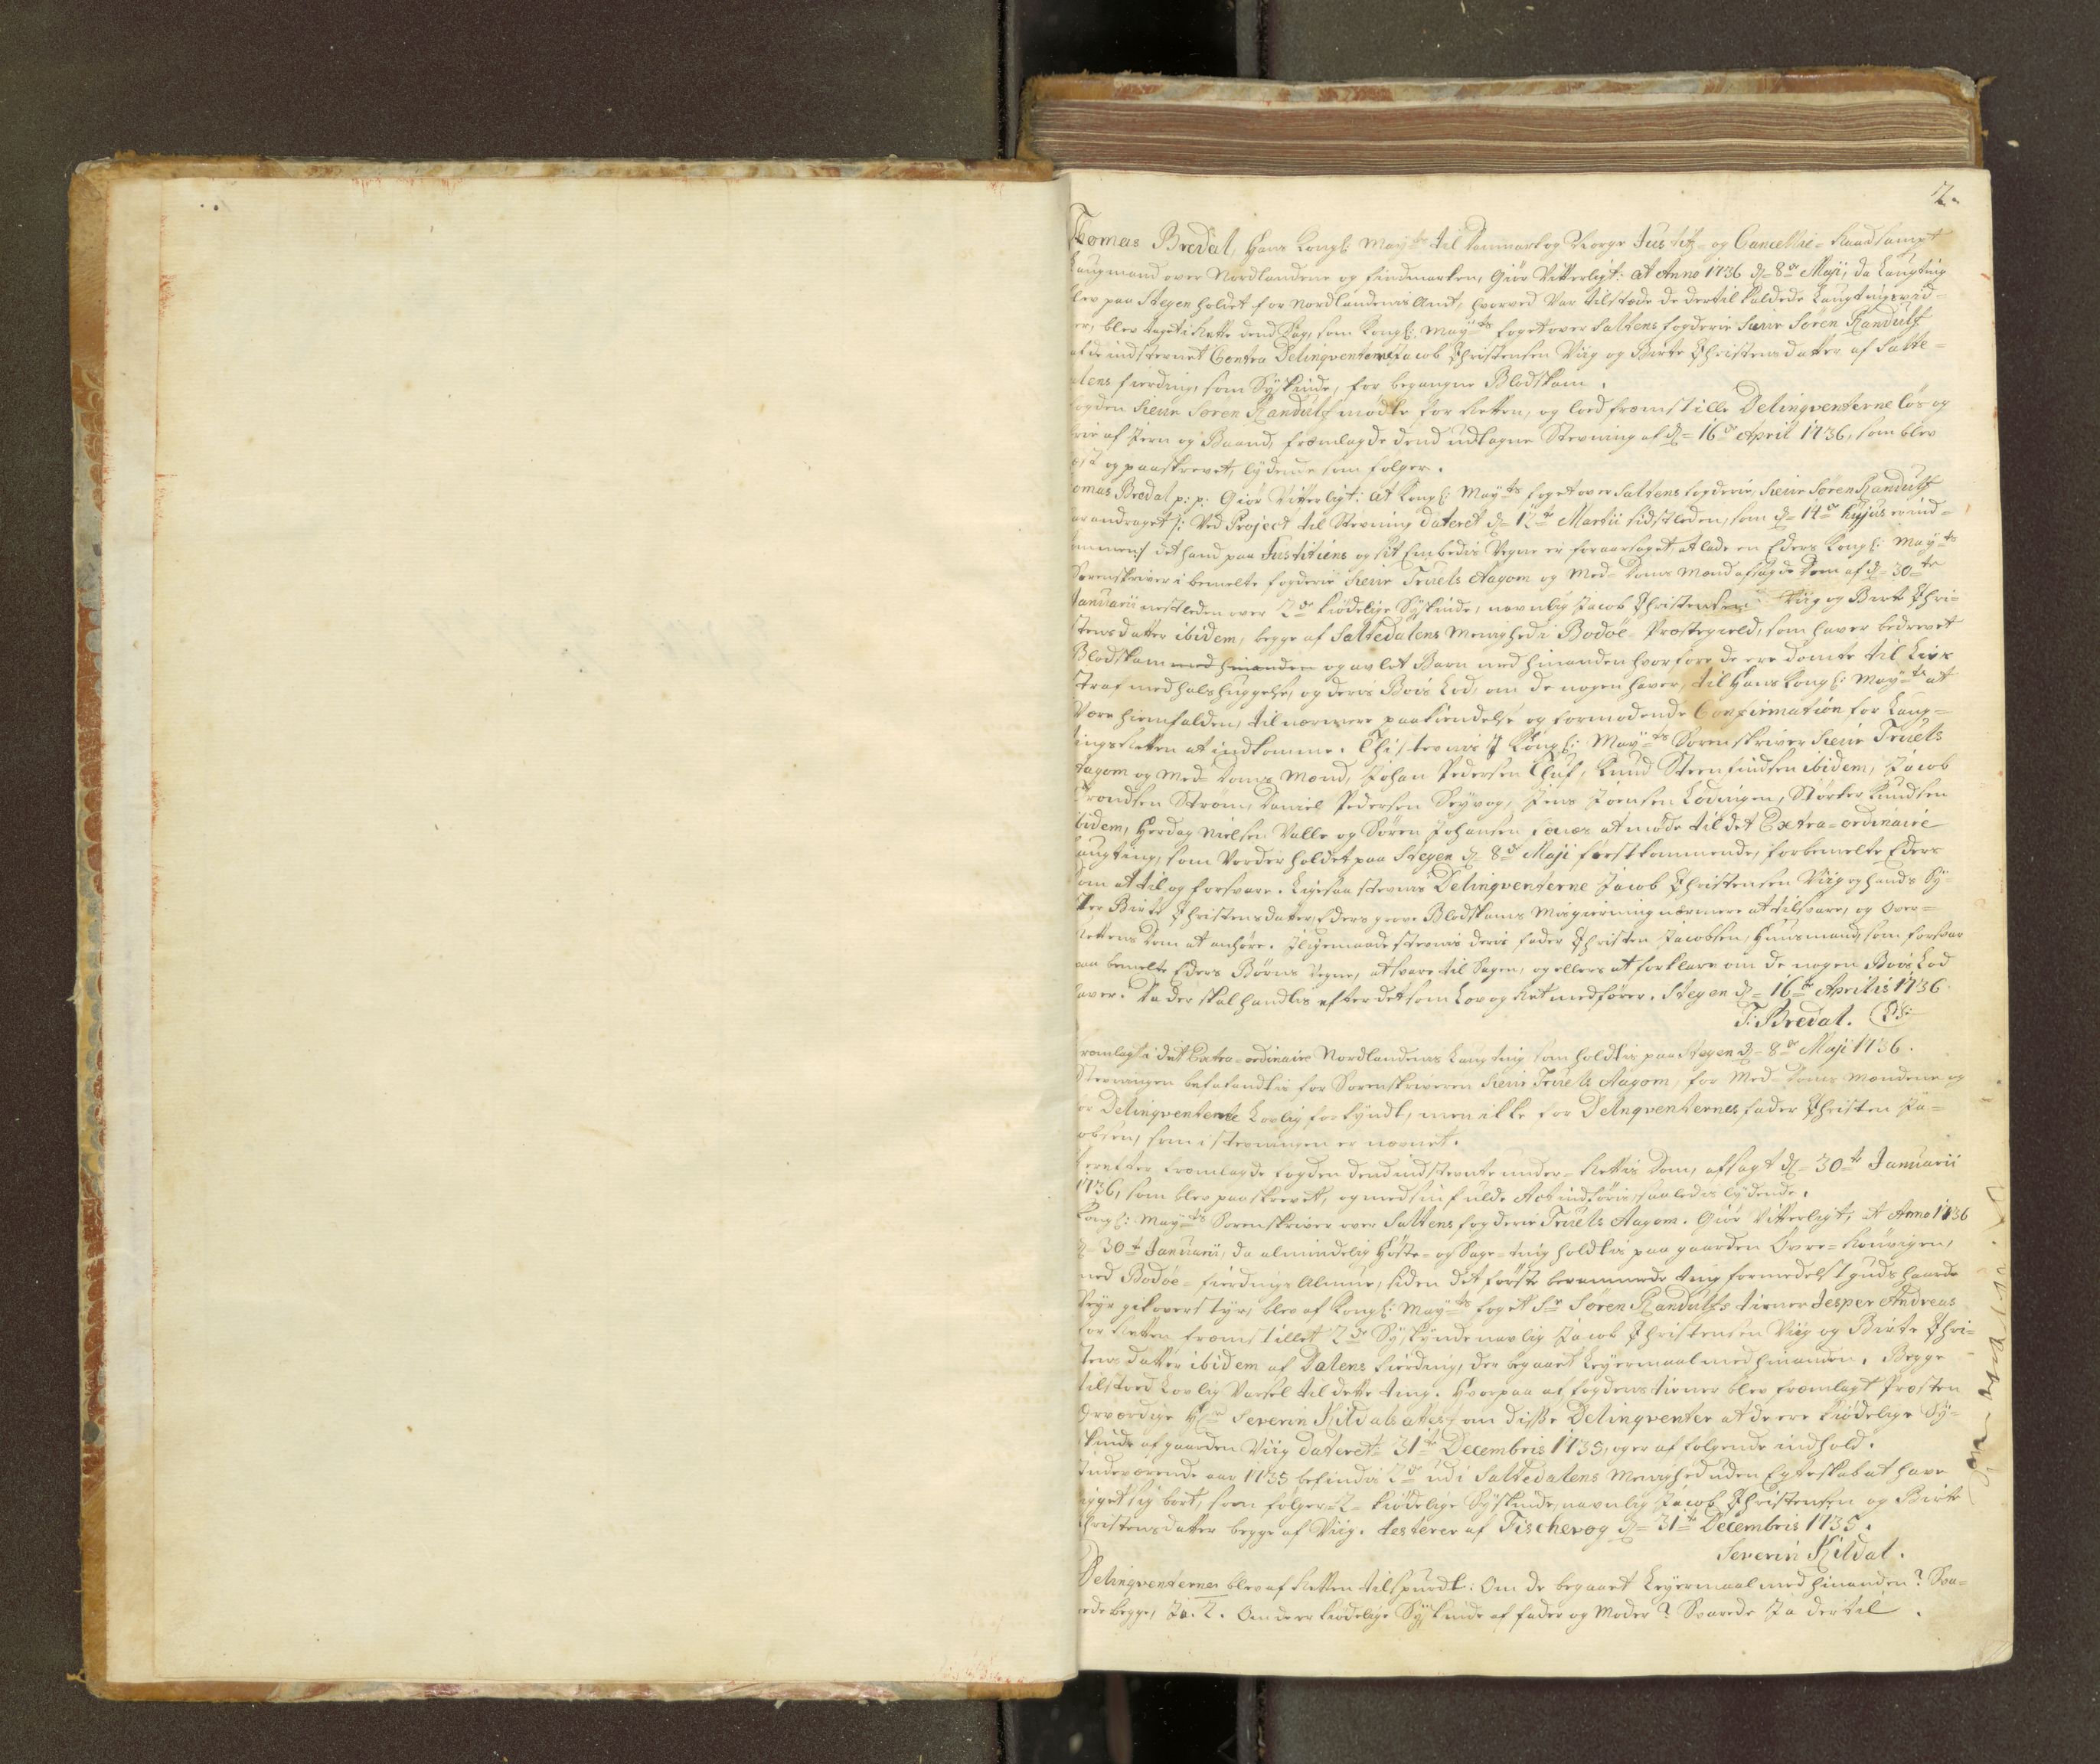 2.
Thomas Bredal, Hans Kongl: May:ts til Danmark og Norge Justitz- og Cancellie-Raad sampt
Laugmand over Nordlandene og Findmarken, Giør Vitterligt: at Anno 1736 d= 8de Maji, da Laugting
blev paa Stegen holdet for Nordlandenis Amt, hvorved Var tilstæde de dertil kaldede Laugtings vid-
er, blev taget i Rette dend Sag, som Kongl: May:ts foget over Saltens fogderie Sieur Søren Randulf
de indstevnet Contra Delinqventerne Jacob Christensen Viig og Birte Christensdatter af Salte-
lens fierding, som Sÿskinde, for begangne Blodskam.
fogden Sieur Søren Randulf mødte for Retten, og loed fremstille Delinqventerne løs og
frie af Jern og Baand, fremlagde dend udtagne Stevning af d= 16de April 1736, som blev
læst og paaskrevet, lydende som følger.
omas Bredal p: p: Giør Vitterligt: at Kongl: May:ts foget over Saltens fogderie, Sieur Søren Randulf
har andraget /: Ved Project til Stevning dateret d= 12te Martii sidstleden, som d= 14de hujus er ind-
kommen :/ det hand paa Justitiens og sit Embedis Vegne er foraarsaget, at lade en Eders Kongl: May:ts
Sorenskriver i bemelte fogderie Sieur Truels Aagom og Med-Doms Mænd afsagde Dom af d= 30te
Januarii nestleden over 2de kiødelige Sÿskinde, navnlig Jacob Christensen Viig og Birte Chri-
stensdatter ibidem, begge af Saltedalens Menighed i Bodøe Præstegield, som haver bedrevet
Blodskam med hinanden og avlet Barn med hinanden hvorfore de ere dømte til Livs
straf med halshuggelse, og deris Boes Lod, om de nogen haver, til Hans Kongl: May:ts at
Være hiemfalden, til nærmere paakiendelse og formodende Confirmation for Laug-
tingsRetten at indkomme. Thi stevnis I Kongl: May:ts Sorenskriver Sieur Truels
Aagom og Med-Doms Mænd, Johan Pedersen , Knud Steenfindsen ibidem, Jacob
Trondsen Strøm, Daniel Pedersen Seÿvog, Jens Joensen Lødingen, Størker Knudsen
ibidem, Hordag Nielsen Valle og Søren Johansen at møde til det Extra-ordinaire
Laugting, som Vorder holdet paa Stegen d= 8de Maji førstkommende, forbemelte Eders
Dom at til og forsvare. Ligesaa stevnis Delinqventerne Jacob Christensen Viig og hands Sÿ-
ster Birte Christensdatter, Eders grove Blodskams Misgierning nærmere at tilsvare, og Over-
Rettens Dom at anhøre. Iligemaade stevnis deris fader Christen Jacobsen, Huusmand, som forsvar
paa bemelte Eders Børns Vegne, at svare til Sagen, og ellers at forklare om de nogen Boes Lod
haver. Da der skal handlis efter det som Lov og Ret medfører. Stegen d= 16de Aprilis 1736.
T: Bredal. (L.S.)
fremlagt i det Extra-ordinaire Nordlandenis Laugting som holdtis paa Stegen d= 8de Maji 1736.
Stevningen befandtis for Sorenskriveren Sieur Truels Aagom, for Med-Doms Mændene og
for Delinqventerne Lovlig forkyndt, men ikke for Delinqventernes fader Christen Ja-
cobsen, som i stevningen er nævnet.
herefter fremlagde fogden dend indstevnte under-Rettis Dom, afsagt d= 30te Januarii
1736, som blev paaskrevet, og med sin fulde Act indføris, saaledis lydende.
Kongl: May:ts Sorenskriver over Saltens fogderie Truels Aagom. Giør Vitterligt, At Anno 1736
d= 30te Januarii, da almindelig Høste- og Sage-ting holdtis paa gaarden Øvre-Rønvigen,
med Bodøe-fierdings Almue, siden det første berammede ting formedelst guds haarde
Veÿr gik over styr, blev af Kongl: May:ts foget Sr Søren Randulfs tiener Jesper Andreas
for Retten fremstillet 2de Sÿskynde navlig Jacob Christensen Viig og Birte Chri-
stensdatter ibidem af Dalens fierding, der begaaet Leÿermaal med hinanden. Begge
tilstoed Lovlig Varsel til dette ting. Hvorpaa af fogdens tiener blev fremlagt Præsten
Ærværdige Hr Severin Kildals attest om disse Delinqventer at de ere kiødelige Sÿ-
skinde af gaarden Viig dateret 31te Decembris 1735, og er af følgende indhold.
Indeværende aar 1735 befindis 2de udi Saltedalens Menighed uden Egteskab at have
ligget sig bort, som følger = 2 = kiødelige Sÿskinde, navnlig Jacob Christensen og Birte
Christensdatter begge af Viig. testerer af Fischevog d= 31te Decembris 1735.
Severin Kildal.
Delinqventerne blev af Retten tilspurdt: Om de begaaet Leÿermaal med hinanden? Sva-
rede begge, Ja. 2. Om de er kiødelige Sÿskinde af fader og Moder? Svarede Ja dertil.